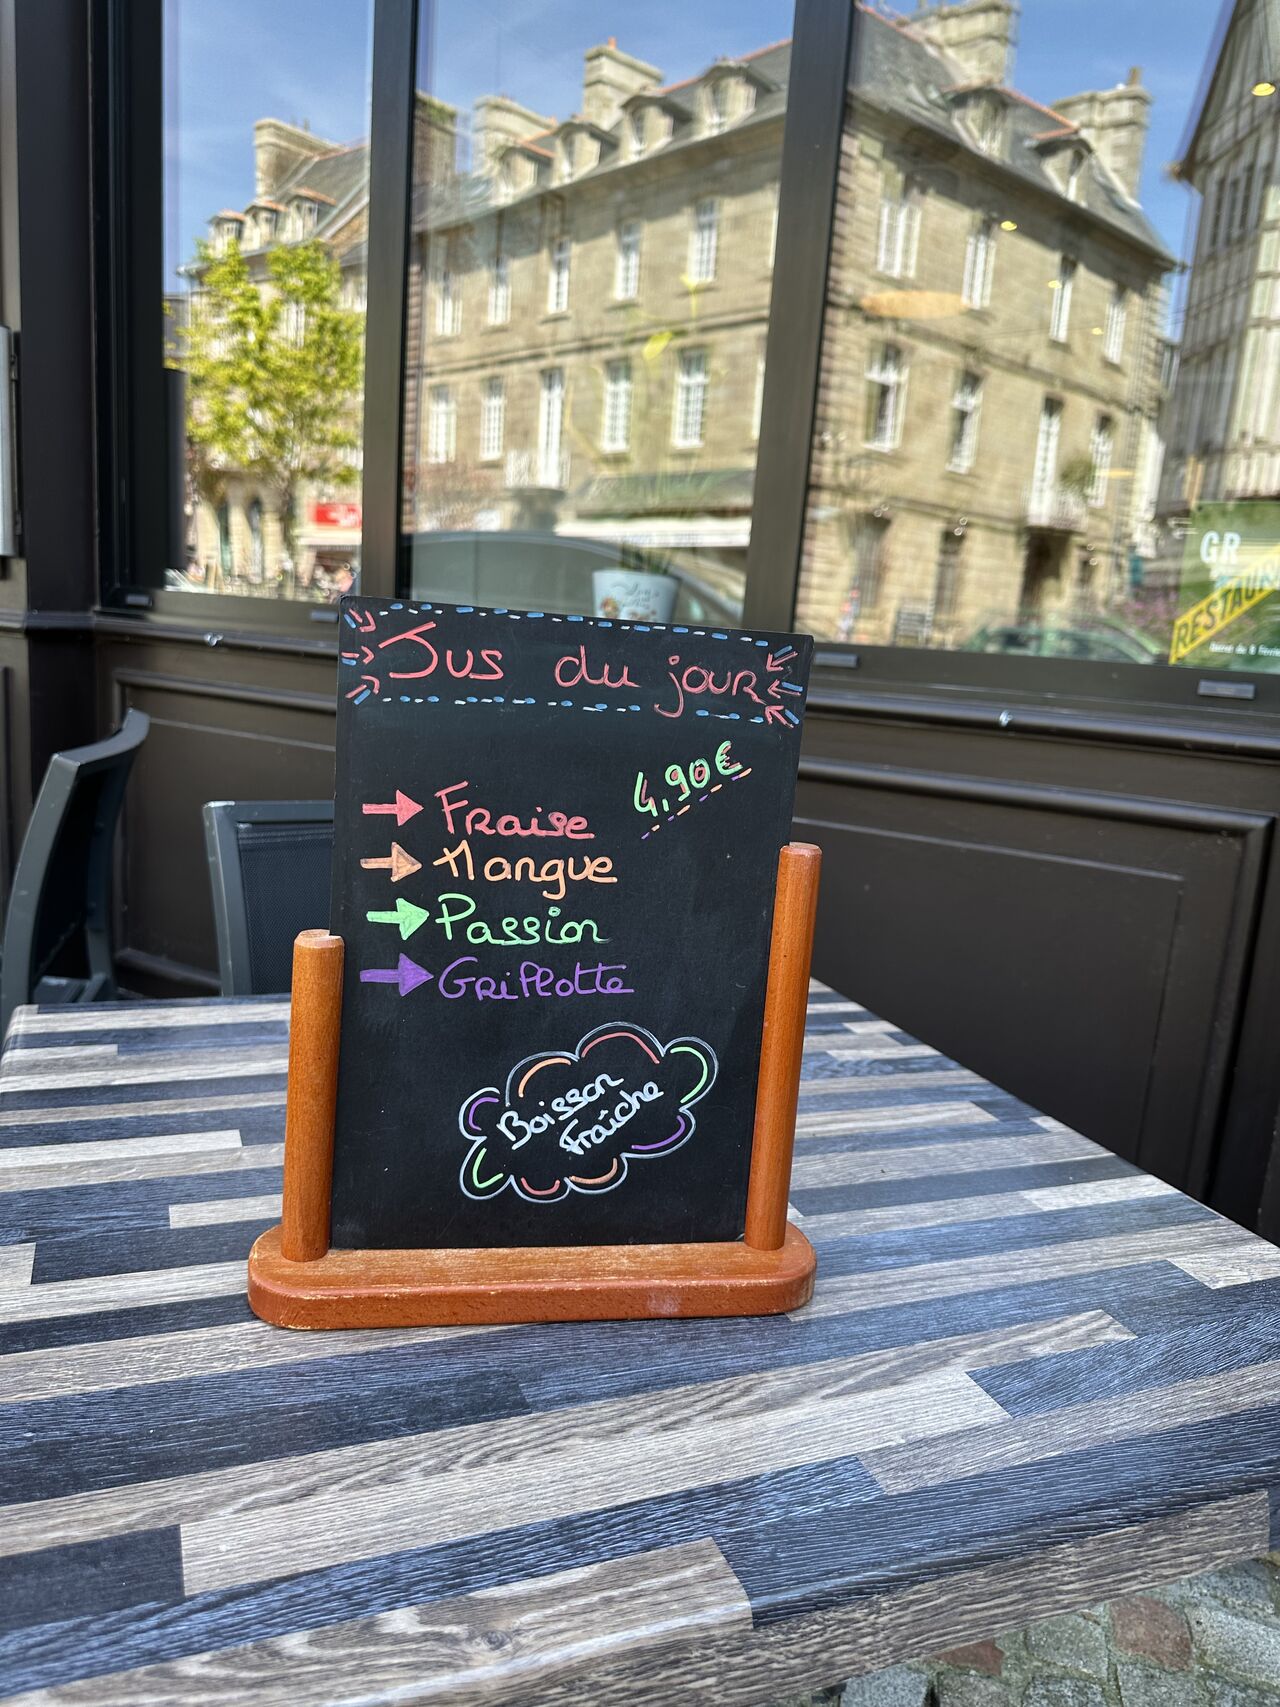 Jus du jour
4,90€
Fraise
Mangue
Passion
Griffotte
Boisson
Fraîche
GR
RESTAU